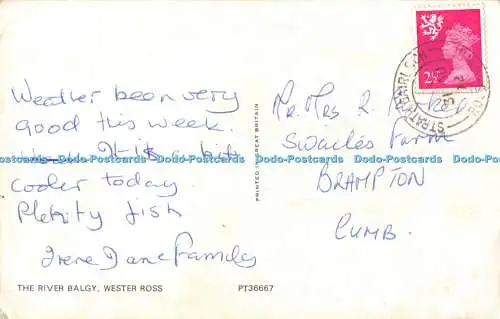 Weather been very
good this week.
It is a bit
cooler today
Plenty fish
Irene Dave Family
THE RIVER BALGY, WESTER ROSS
PT36667
PRINTED IN GREAT BRITAIN
2½P
STRATHCARRON
Mr. Mrs R.
Swailes Farm
BRAMPTON
CUMB.
Dodo-Postcards Dodo-Postcards Dodo-Postcards Dodo-Postcards Dodo-Postcards Dodo-Postcards